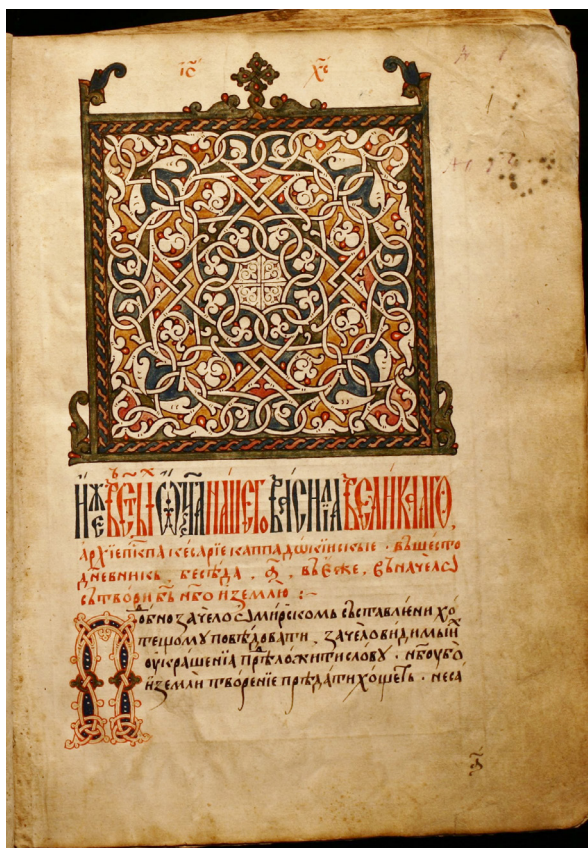 і҃с х҃с
И҆же въ ст҃ы́хъ ѿц҃а на́шего васи́лїа вели́каго,
архїепⷭ҇кпа кесарїе каппадѡкїискые · въ шесто
дневникь. бесѣда, а҃, въ еже, въ начелѡ
сътвори бь нб҃о и҆ землю :~
Подобно зачело ѡ мирⷭ҇комь съставлени хо
тещомꙋ повѣдовати. зачело видимыи҆
оукрашенїа прѣложити словꙋ · нб҃о ꙋбо
и҆ земли творенїе прѣдати хощеть · не са
а҃